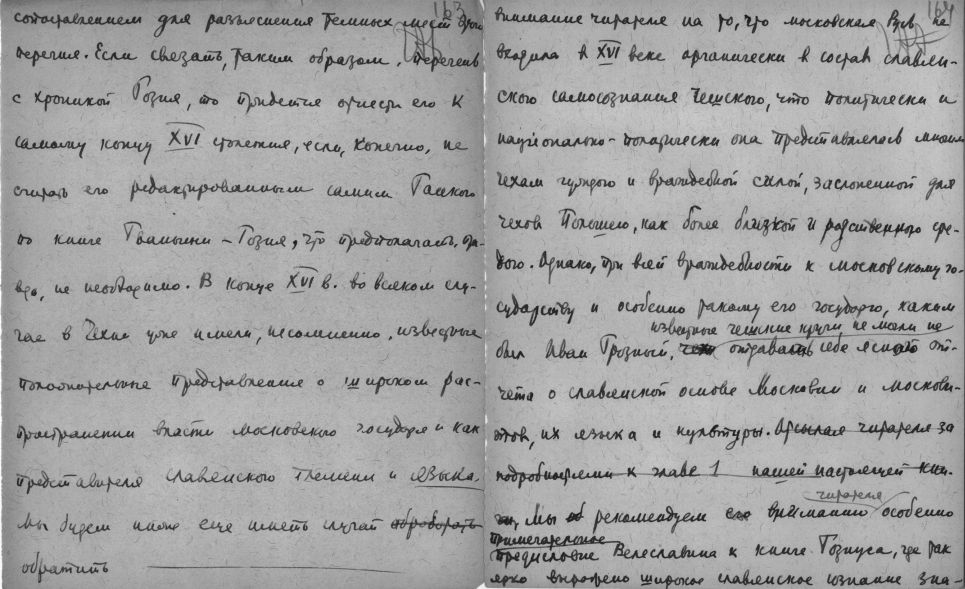 163
сопоставлением для разъяснения темных мест этого
перечня. Если связать, таким образом, перечень
с хроникой Гозия, то придется отнести его к
самому концу XVI столетия, если, конечно, не
считать его редактированным самим Гаеком
по книге Гваньини - Гозия, что предполагать, пра-
вда, не необходимо. В конце XVI в. во всяком слу-
чае в Чехии уже имели, несомненно, известные
положительные представления о широком рас-
пространении власти московского государя и как
представителя славянского племени и языка.
Мы будем ниже еще иметь случай
обратить
164
внимание читателя на то, что московская Русь не
входила в XVI веке органически в состав славян-
ского самосознания чешского, что политически и
национально-политически она представлялась многим
чехам чуждой и враждебной силой, заслоненной для
чехов Польшею, как более близкой и родственной сре-
дою. Однако, при всей враждебности к московскому го-
сударству и особенно такому его государю, каким
известные чешские круги, не могли не
был Иван Грозный, отдавать себе ясного от-
чета о славянской основе Московии и москови-
тов, их языка и культуры. Отсылая читателя за
подробностями к главе 1 нашей настоящей кни-
читателя
ги, Мы рекомендуем вниманию особенно
примечательное
предисловие Велеславина к книге Гозиуса, где так
ярко выражено широкое славянское сознание зна-